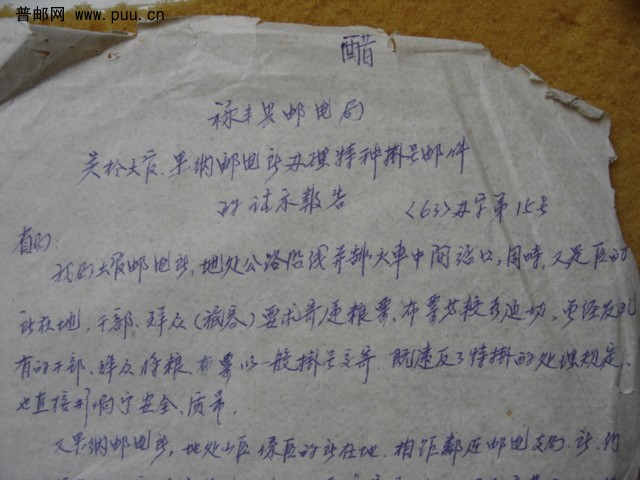 普邮网
www.puu.cn
醋
禄丰县邮电局
关於大庄、果纳邮电所办理特种掛号邮件
的请示报告 <63>办字第15号
省局:
我局大庄邮电所,地处公路沿线并靠火车中间站口,同時,又是区的
所在地,干部、群众(旅客)要求寄递粮票、布票比较多迫切,
有的干部、群众将粮、布票以一般掛号交寄,既违反了特掛的处理规定,
也直接影响守安全、质量。
又果纳邮电所,地处山区 的所在地,相距鄰近邮电支局、所、约